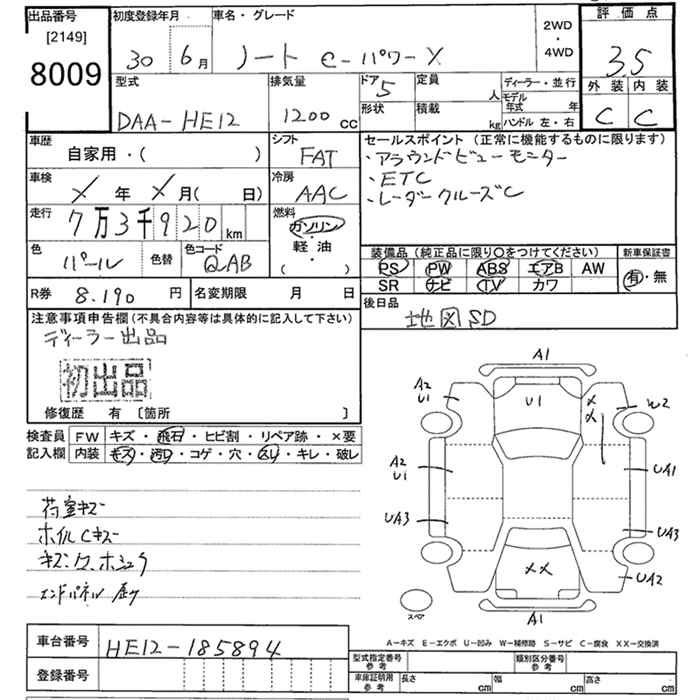 出品番号
[2149]
8009
初度登録年月
30 6月
車名・グレード
ノート e-パワーX
2WD
・
4WD
評価点
3.5
外装 内装
C C
型式
DAA-HE12
排気量
1200 cc
ドア 5
形状
定員 人
積載 kg
ディーラー・並行
モデル年式 年
ハンドル 左・右
車歴
自家用・( )
シフト
FAT
車検
X年X月( 日)
冷房
AAC
走行
7万3千920km
燃料
ガソリン
軽油
( )
色
パール
色替
色コード
QAB
セールスポイント (正常に機能するものに限ります)
・アラウンドビューモニター
・ETC
・レーダークルーズC
装備品 (純正品に限り○をつけてください)
PS PW ABS エアB AW
SR ナビ TV カワ
新車保証書
有・無
R券 8.190 円
名変期限 月 日
後日品
地図SD
注意事項申告欄(不具合内容等は具体的に記入して下さい)
ディーラー出品
初出品
修復歴 有 [箇所 ]
検査員記入欄
FW キズ・飛石・ヒビ割・リペア跡・×要
内装 キズ・汚レ・コゲ・穴・スレ・キレ・破レ
荷室キズ
ホイルCキズ
エンドパネル
A1
A2
U1
U1
X
X
W2
A2
U1
UA1
UA3
UA3
XX
UA2
A1
スペア
A-キズ E-エクボ U-凹み W-補修跡 S-サビ C-腐食 XX-交換済
車台番号
HE12-185894
登録番号
型式指定番号 参考
類別区分番号 参考
車庫証明用 参考
長さ cm
幅 cm
高さ cm